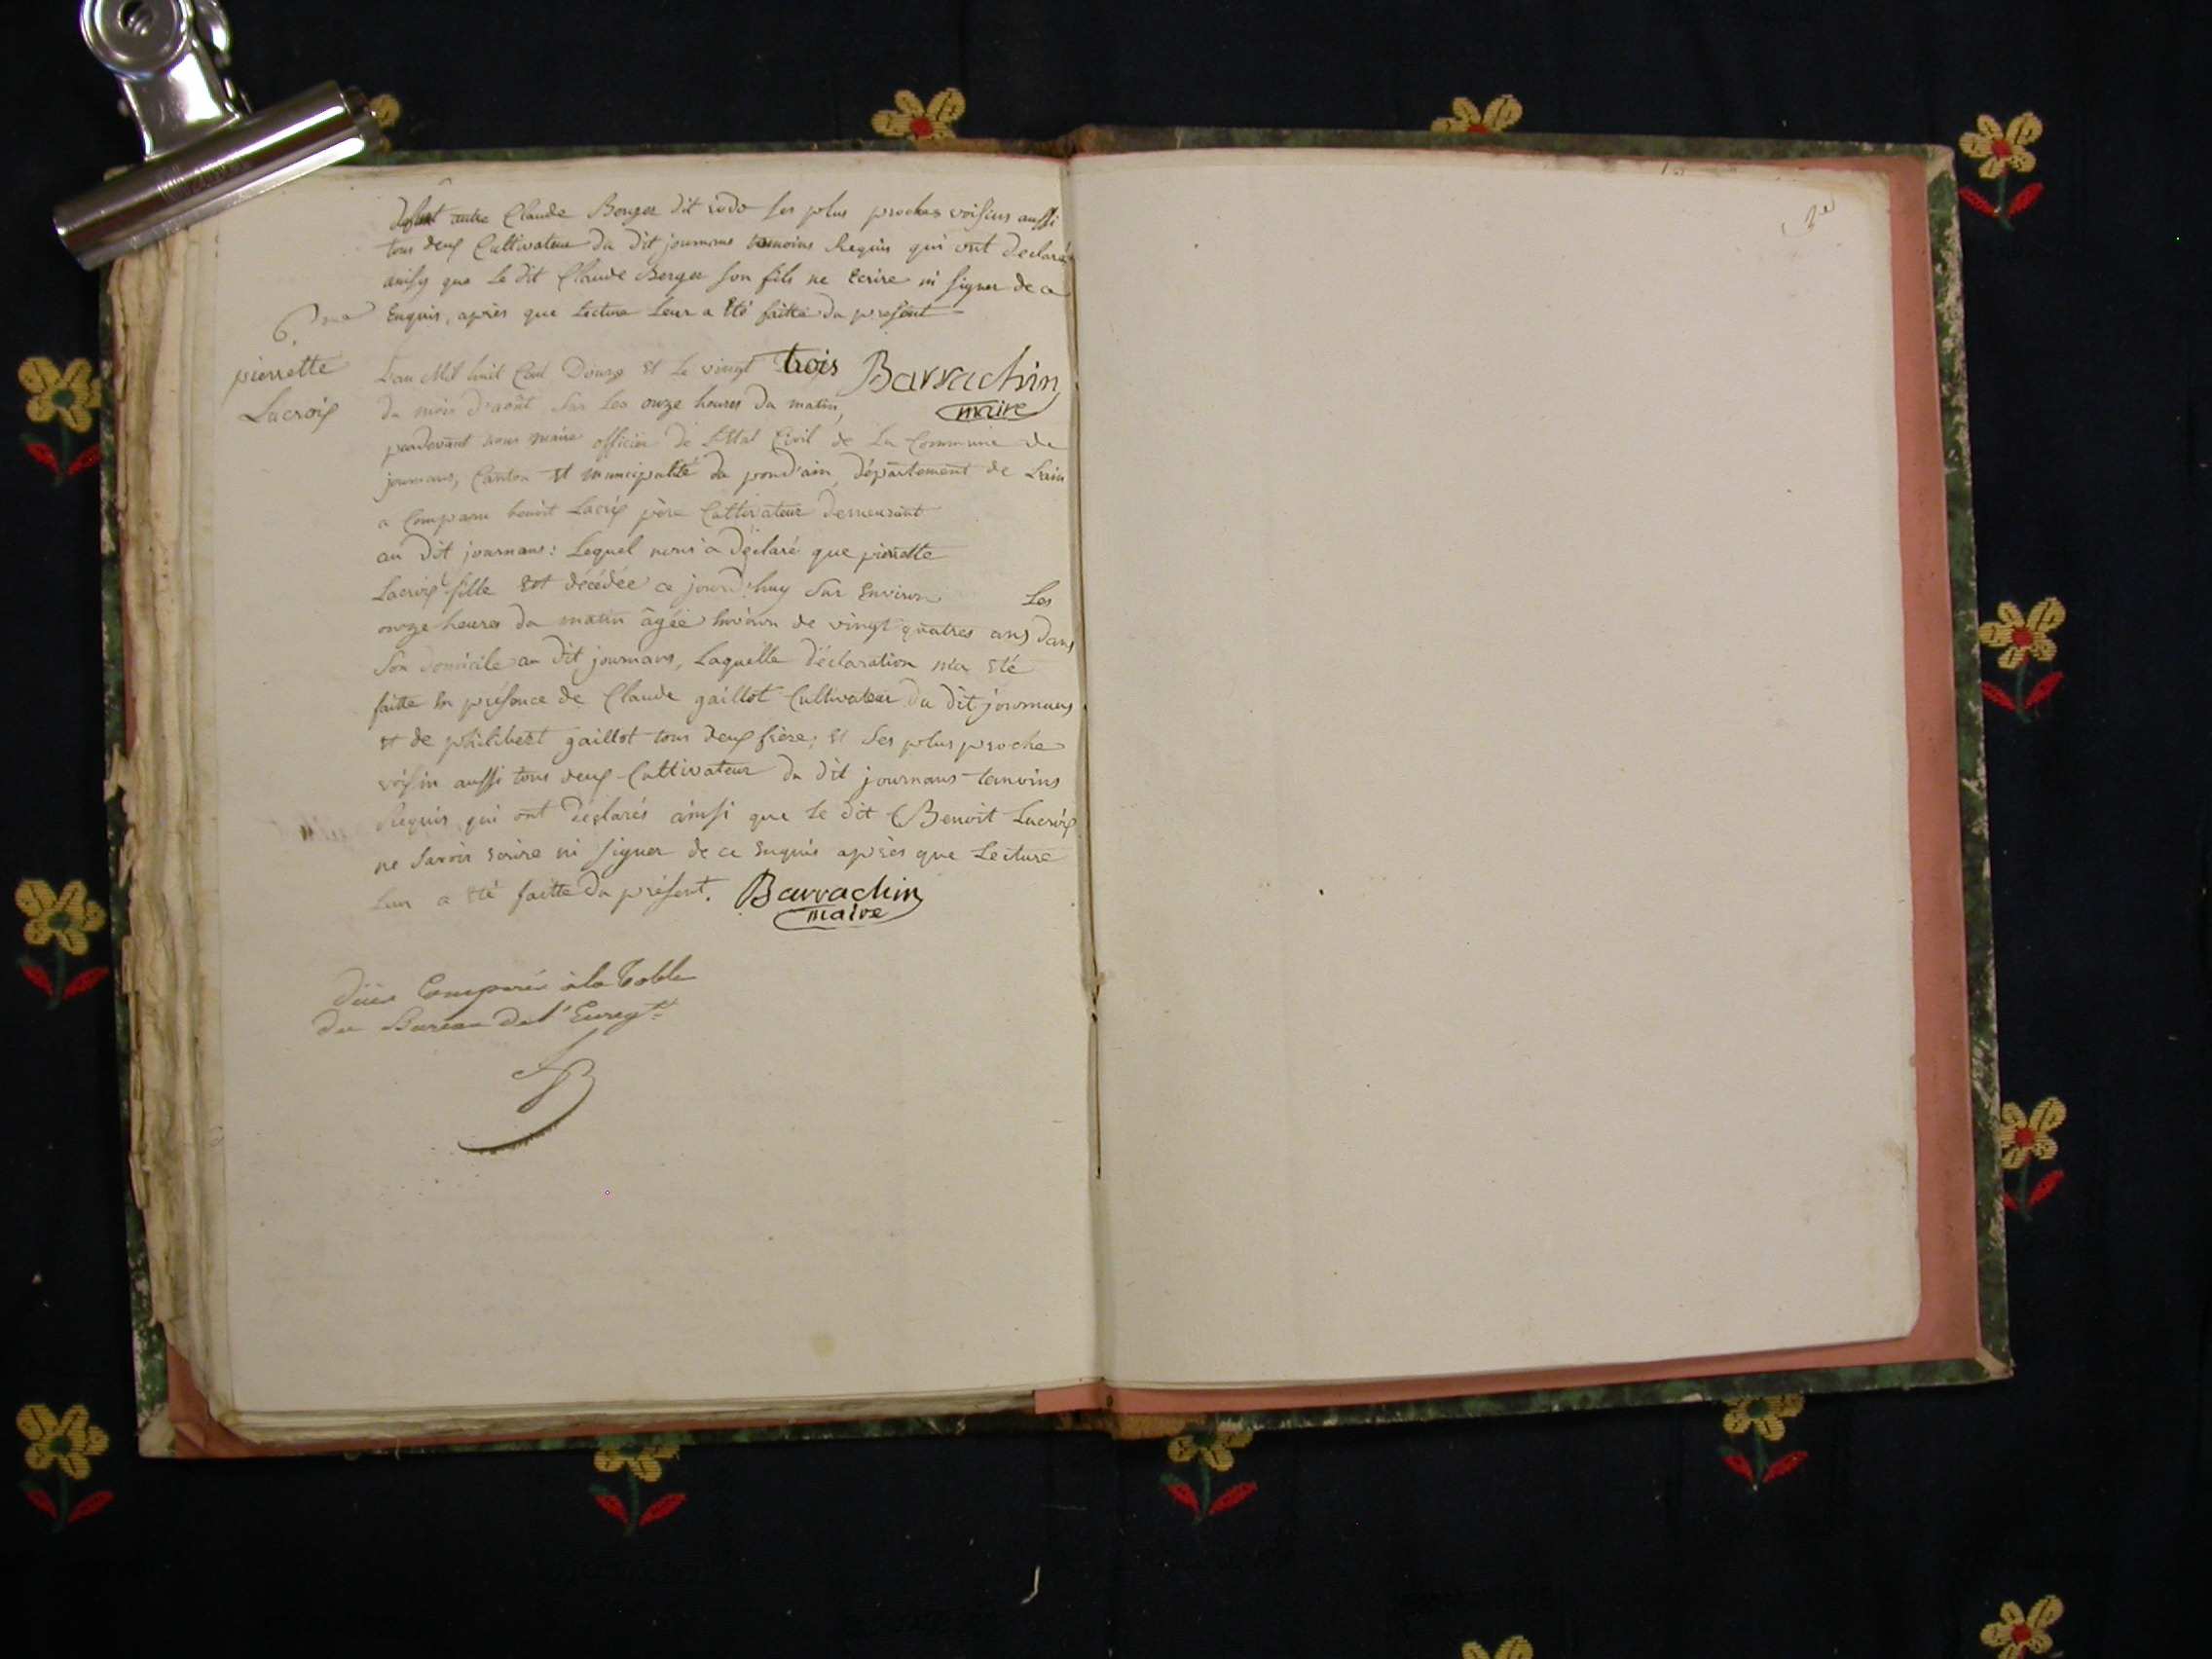 autre Claude Berger dit rodo ses plus proches voisins aussi
tous deux Cultivateur du dit journans temoins Requis qui ont declaré
ainsy que Le dit Claude Berger son fils ne Ecrire ni signer de ce
Enquis, après que Lecture Leur a Eté faitte du présent
6.me
pierrette
Lacroix
L'an Mil huit Cent Douze Et Le vingt trois Barrachin
du mois d'août Sur Les onze heures du matin, maire
pardevant nous maire officier de L'Etat Civil de La Commune de
journans, Canton Et municipalité du pond'ain, département de L'ain
a Comparu benoit Lacroix père Cultivateur demeurant
au dit journans: Lequel nous a déclaré que pierrette
Lacroix fille Est décédée ce jourd'huy Sur Environ Les
onze heures du matin âgée Environ de vingt quatres ans dans
Son domicile au dit journans, Laquelle déclaration m'a Eté
faitte En présence de Claude gaillot Cultivateur du dit journans
et de philibert gaillot tous deux frère, Et Ses plus proche
voisin aussi tous deux Cultivateur du dit journans temoins
Requis, qui ont déclarés ainsi que Le dit Benoit Lacroix
ne Savoir Ecrire ni signer de ce Enquis après que Lecture
Leur a Eté faitte du présent. Barrachin
maire
Décès Comparés à la Table
du Bureau de l'Enreg.t